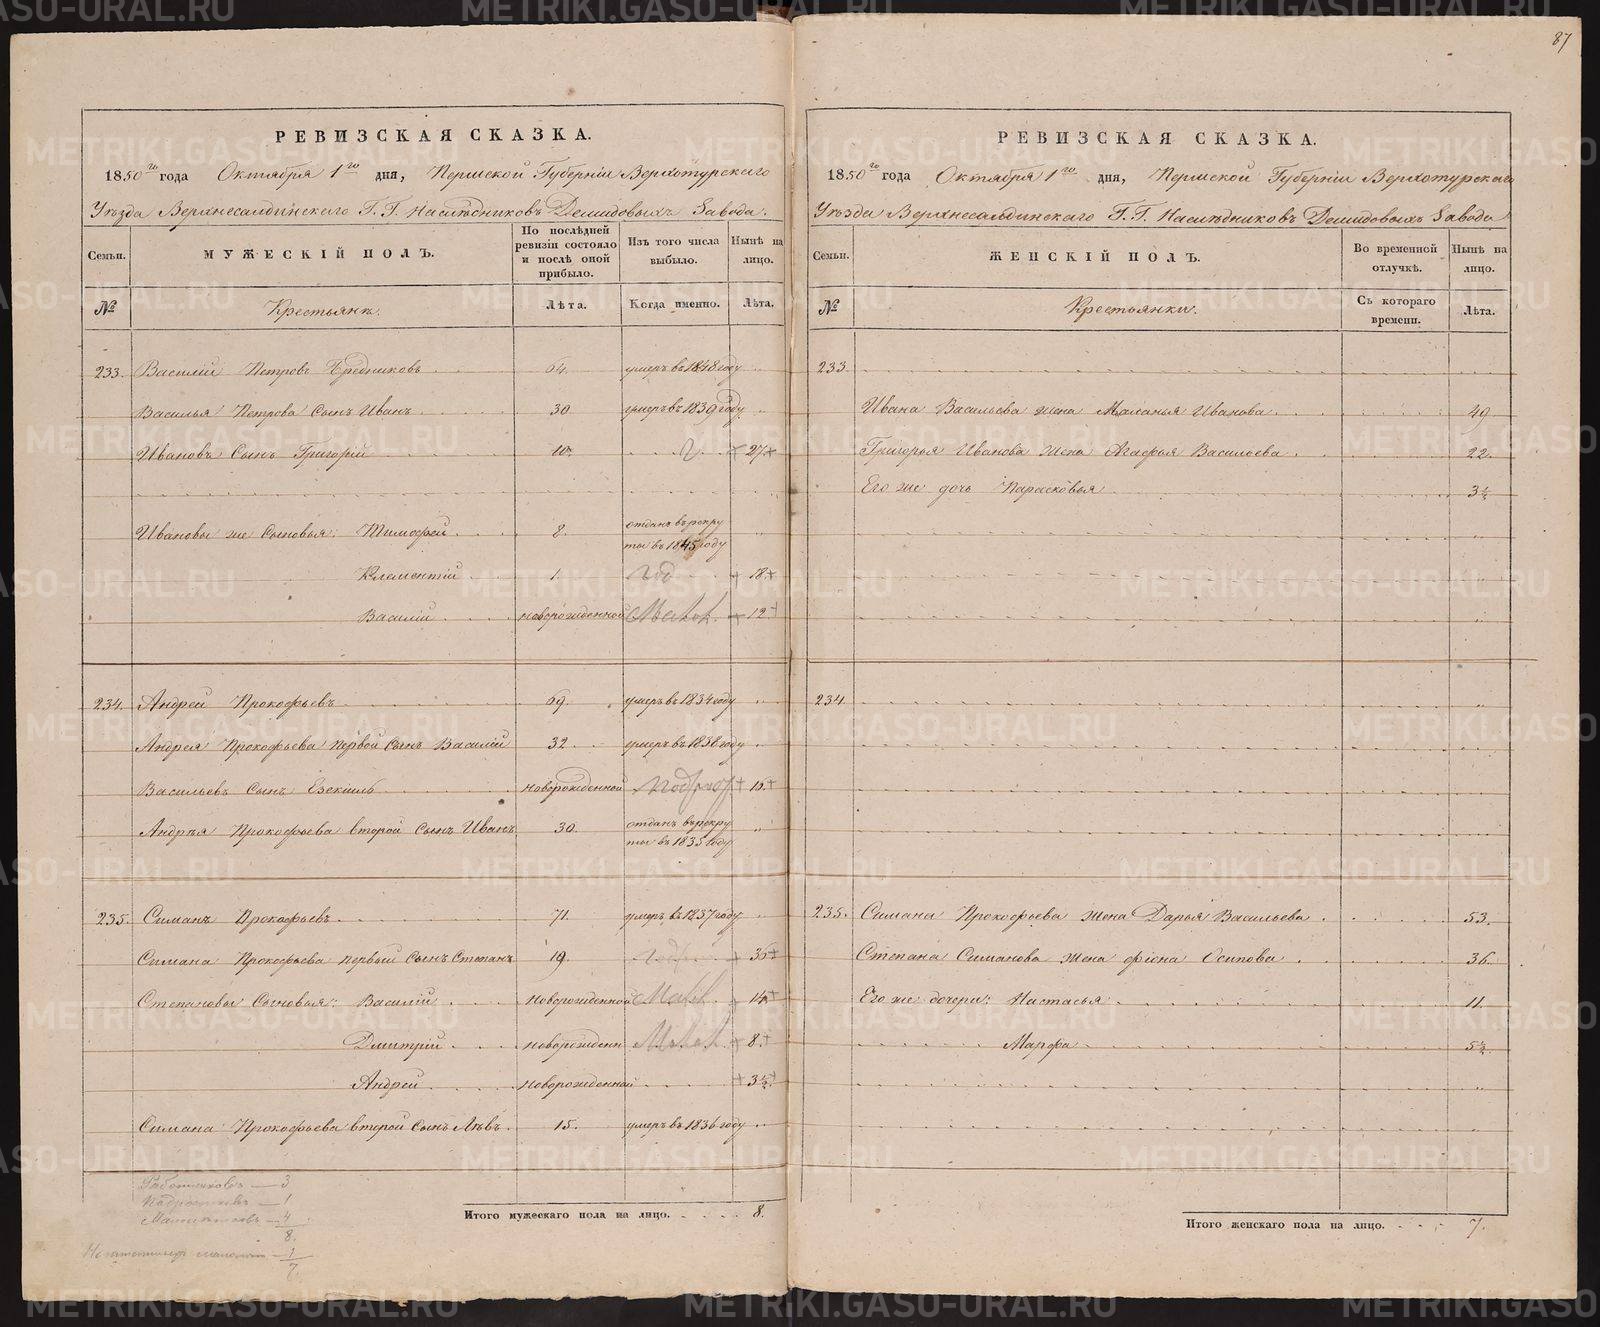 87
РЕВИЗСКАЯ СКАЗКА.
1850го года Октября 1го дня, Пермской Губерніи Верхотурскаго
Уѣзда Верхнесалдинскаго Г.Г. Наслѣдниковъ Демидовыхъ Завода.
Семьи. МУЖЕСКІЙ ПОЛЪ. По послѣдней ревизіи состояло и послѣ оной прибыло. Изъ того числа выбыло. Нынѣ на лицо.
№ Крестьянъ. Лѣта. Когда именно. Лѣта.
233. Василій Петровъ 64. умеръ въ 1848 году
Василья Петрова Сынъ Иванъ 30. умеръ въ 1839 году
Ивановъ Сынъ Григорій 10. 27
Ивановы же Сыновья: Тимофей 8. отданъ въ рекру
ты въ 1845 году
Клементій 1. 18
Василій новорожденной 12
234. Андрей Прокофьевъ 69. умеръ въ 1834 году
Андрея Прокофьева первой Сынъ Василій 32. умеръ въ 1838 году
Васильевъ Сынъ Езекіиль новорожденной 16.
Андрея Прокофьева второй Сынъ Иванъ 30. отданъ въ рекру
ты въ 1835 году
235. Симанъ Прокофьевъ 71. умеръ въ 1837 году
Симана Прокофьева первый Сынъ Степанъ 19. 35
Степановы Сыновья: Василій новорожденной 14
Дмитрій новорожденн 8.
Андрей новорожденной 3½
Симана Прокофьева второй Сынъ Лѣвъ. 15. умеръ въ 1836 году
Работниковъ — 3
Подростковъ — 1
4
8.
1
7
Итого мужескаго пола на лицо. 8.
РЕВИЗСКАЯ СКАЗКА.
1850го года Октября 1го дня, Пермской Губерніи Верхотурскаго
Уѣзда Верхнесалдинскаго Г.Г. Наслѣдниковъ Демидовыхъ Завода
Семьи. ЖЕНСКІЙ ПОЛЪ. Во временной отлучкѣ. Нынѣ на лицо.
№ Крестьянки. Съ котораго времени. Лѣта.
233.
Ивана Васильева жена Маланья Иванова 49
Григорья Иванова жена Агафья Васильева 22.
Его же дочь Парасковья 3½
234.
235. Симана Прокофьева жена Дарья Васильева 53.
Степана Симанова жена Фіона Осипова 36.
Его же дочери: Настасья 11.
Марфа 5½
Итого женскаго пола на лицо. 7.
METRIKI.GASO-URAL.RU